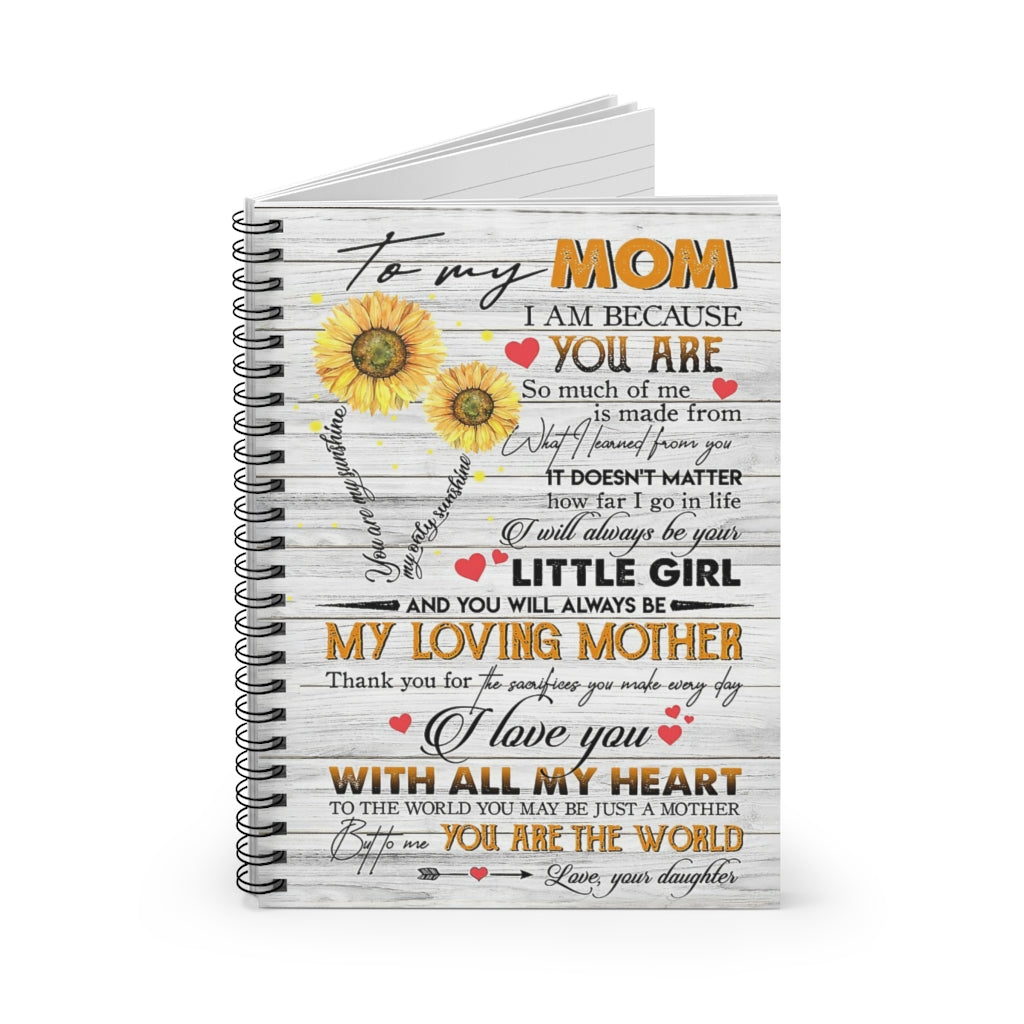 To my MOM
I AM BECAUSE
YOU ARE
So much of me
is made from
What I learned from you
IT DOESN'T MATTER
how far I go in life
I will always be your
LITTLE GIRL
You are my sunshine
my only sunshine
AND YOU WILL ALWAYS BE
MY LOVING MOTHER
Thank you for the sacrifices you make every day
I love you
WITH ALL MY HEART
TO THE WORLD YOU MAY BE JUST A MOTHER
But to me YOU ARE THE WORLD
Love, your daughter